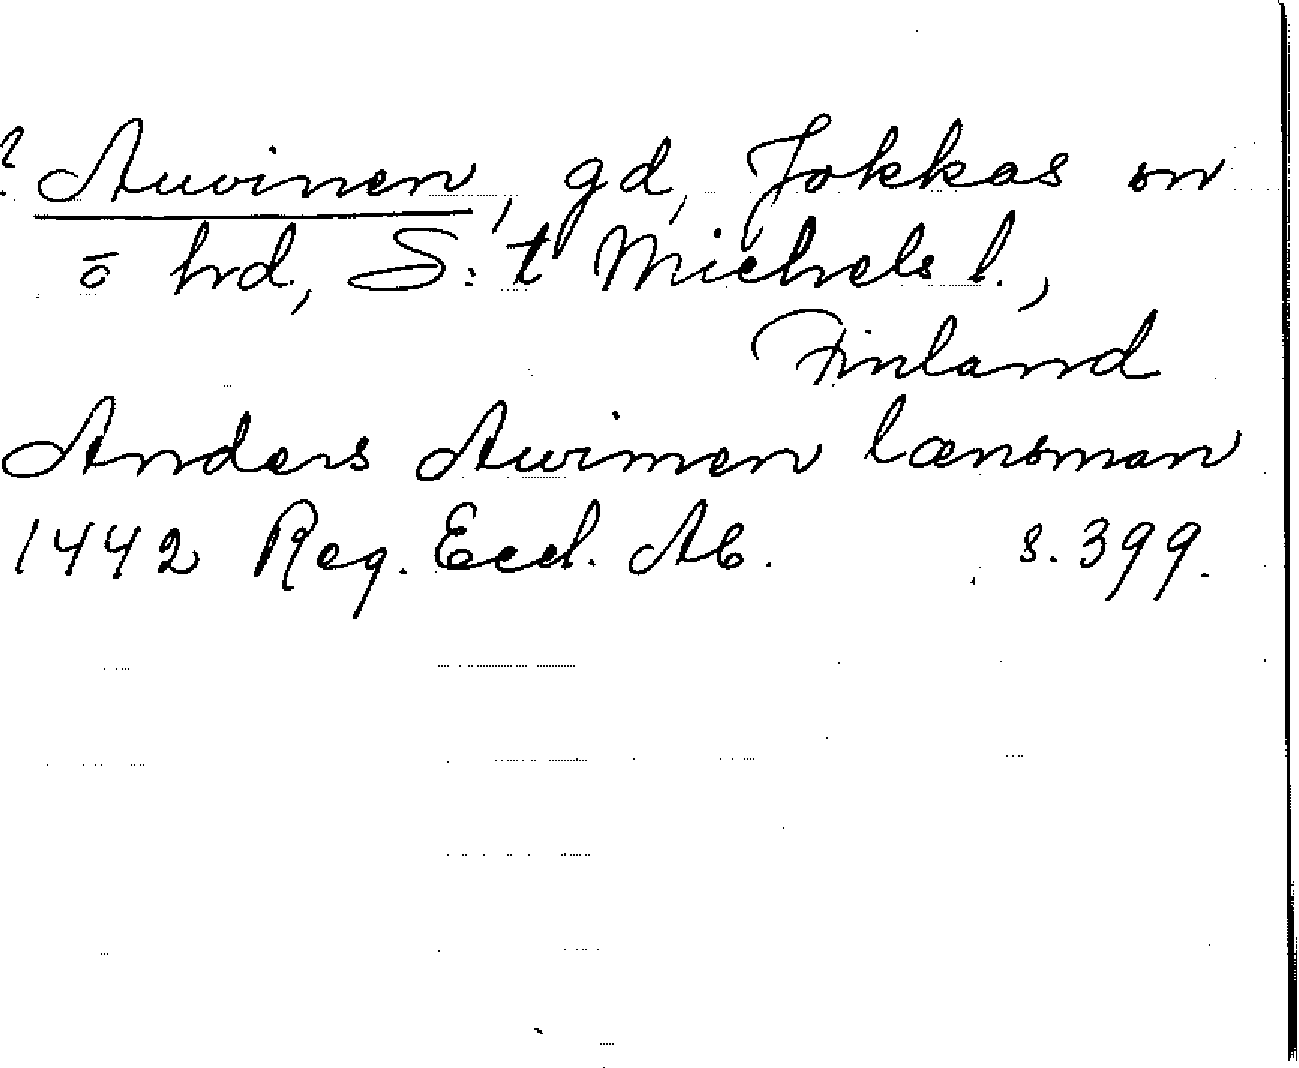 ? Auvinen, gd, Jokkas sn
o hrd, S:t Michels l.,
Finland
Anders Awimen lænsman
1442 Reg. Eccl. Ab. s. 399.